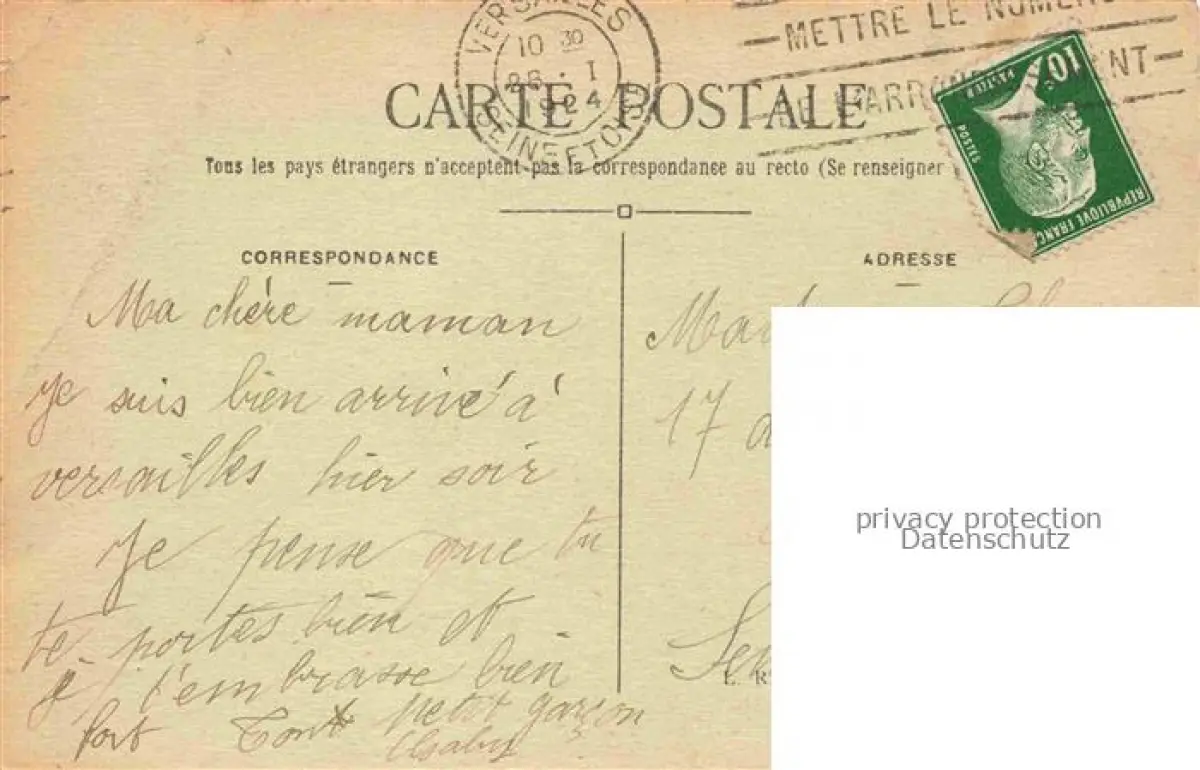 VERSAILLES
10 30
26 · I
1924
SEINE ET OISE
METTRE LE NUMÉRO
10c
PASTEUR
POSTES
REPUBLIQUE FRANC
CARTE POSTALE
Tous les pays étrangers n'acceptent pas la correspondance au recto (Se renseigner
CORRESPONDANCE
ADRESSE
Ma chère maman
je suis bien arrivé à
versailles hier soir
Je pense que tu
te portes bien et
je t'embrasse bien
fort Ton petit garçon
17
privacy protection
Datenschutz